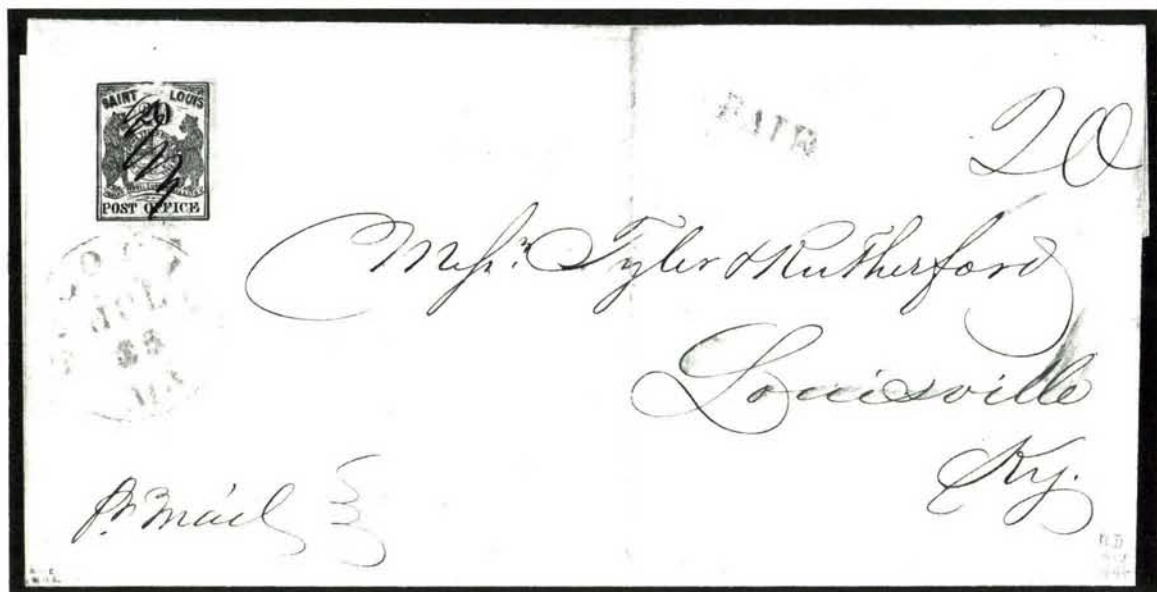 SAINT LOUIS
20
POST OFFICE
PAID
20
Messrs. Tyler & Rutherford
Louisville
Ky.
JUL
Pr. Mail